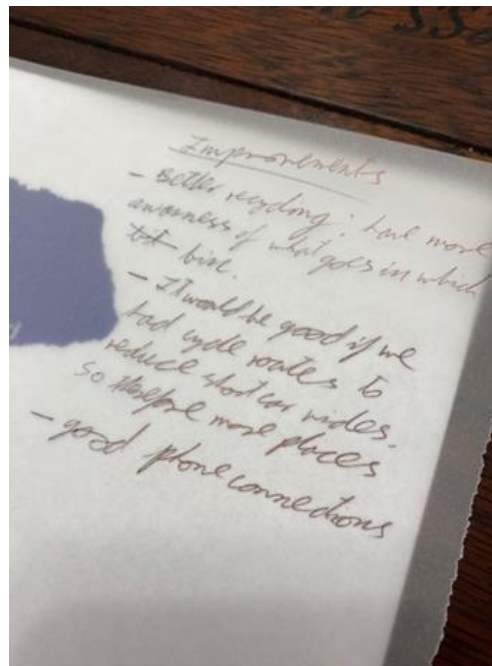 Improvements
- Better recycling: have more
awarness of what goes in which
bin.
- It would be good if we
had cycle routes to
reduce short car rides.
so therefore more places
- good phone connections